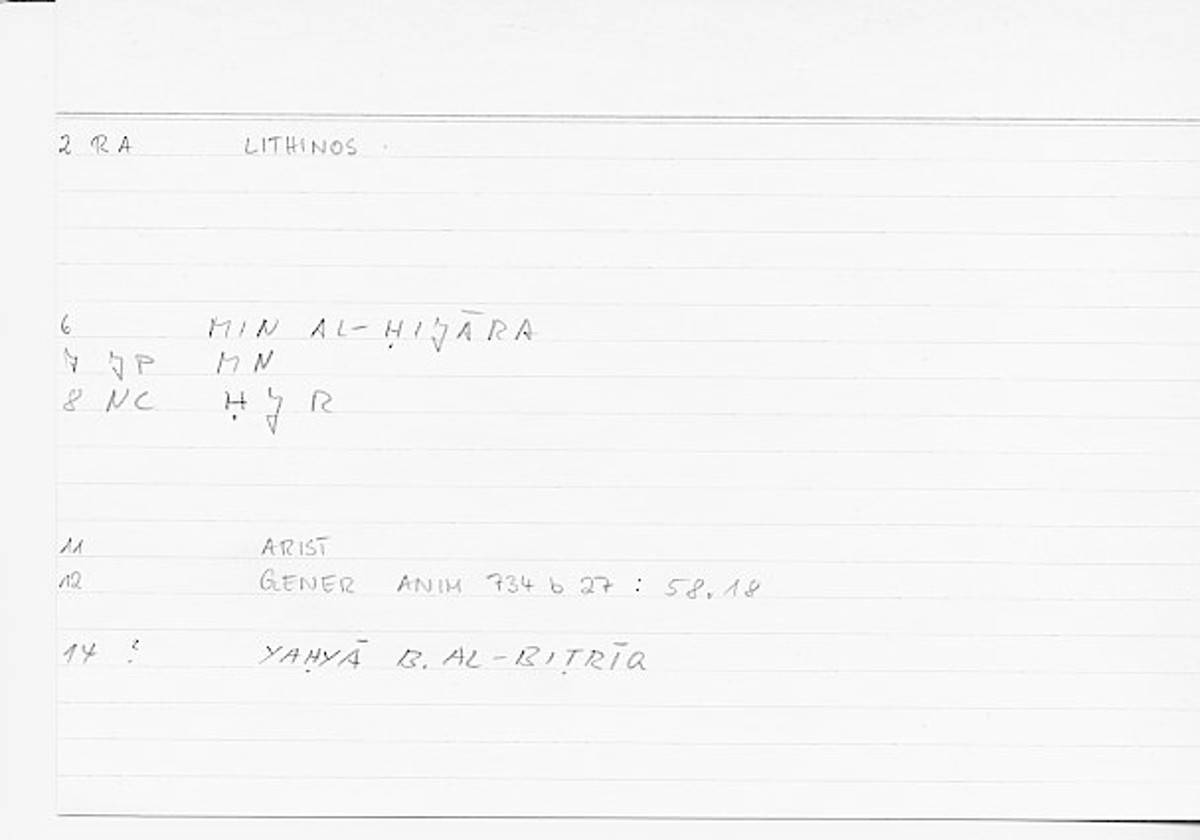 2 RA LITHINOS
6 MIN AL-ḤIJĀRA
7 JP MN
8 NC Ḥ J R
11 ARIST
12 GENER ANIM 734 b 27 : 58.18
14 ? YAḤYĀ B. AL-BIṬRĪQ